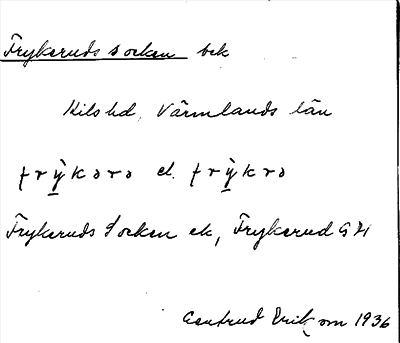 Frykeruds socken bek
Kils hd, Värmlands län
frỳkərə el. frỳkrə
Frykeruds Socken ek, Frykerud GK
Gertrud Ericson 1936